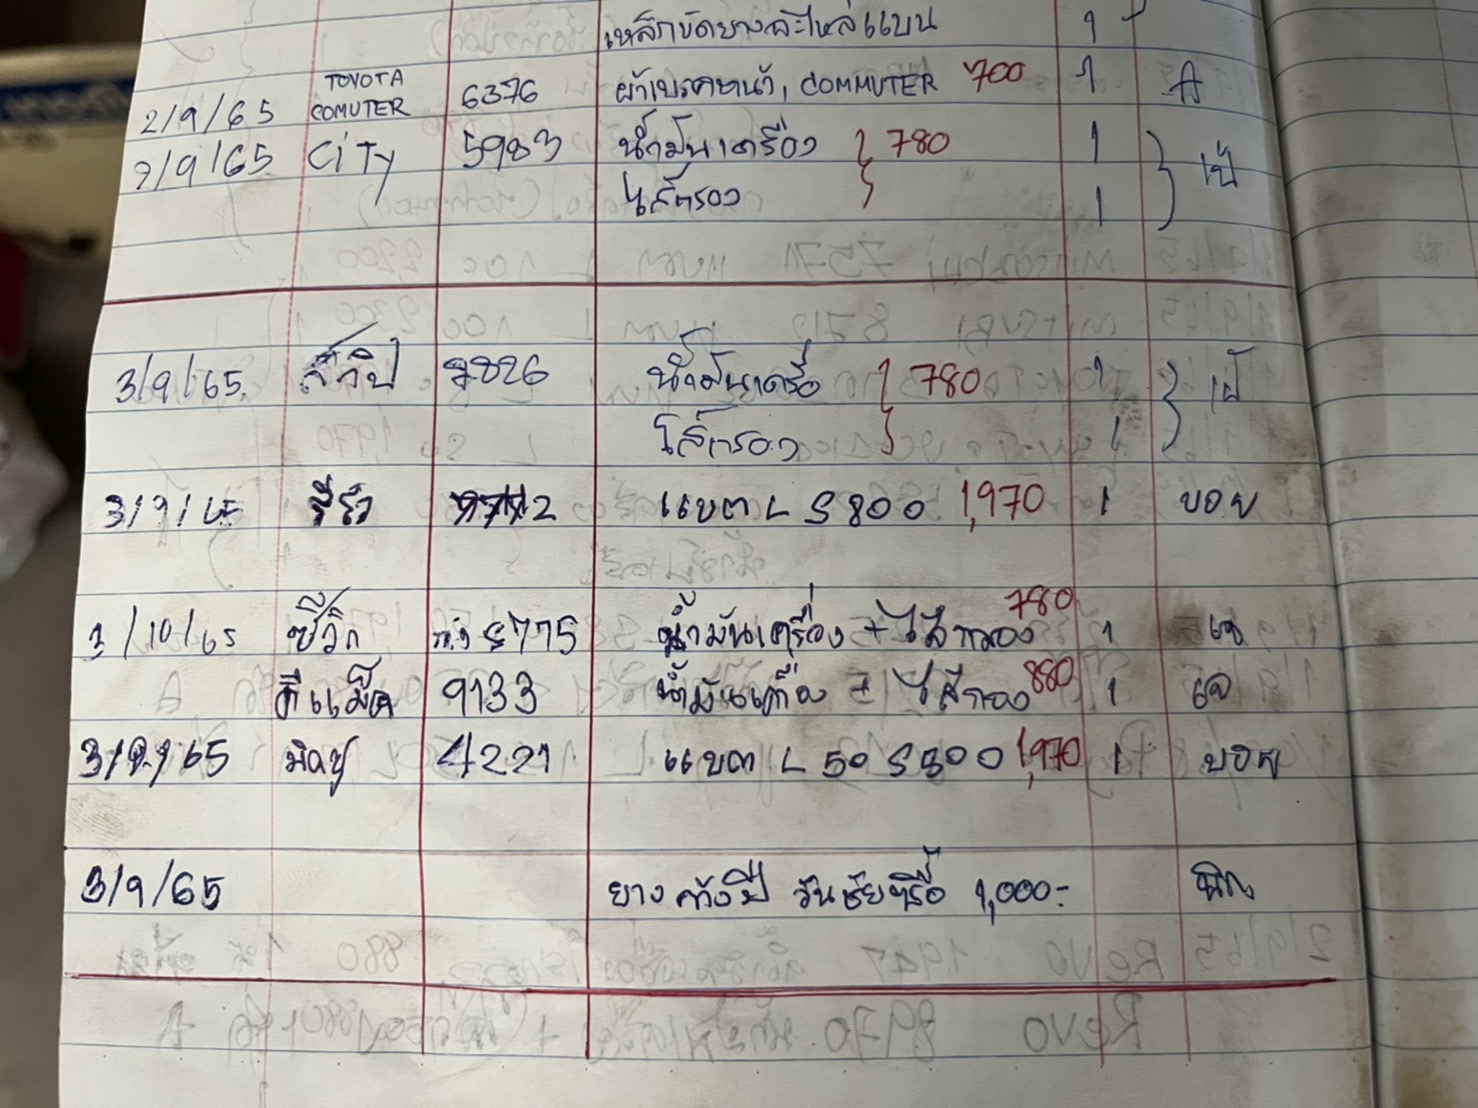 เหล็กขัดยางอะไหล่แบน 1
2/9/65 TOYOTA COMUTER 6376 ผ้าเบรคหน้า, COMMUTER 700 1 A
2/9/65 CiTy 5983 น้ำมันเครื่อง 780 1 เป้
ไส้กรอง 1
3/9/65. 7826 น้ำมันเครื่อ 780 1 เป้
ไส้กรอง 1
3/9/65 รีโว่ 2 แบต L S 800 1,970 1 บอย
3/10/65 ซีวิก 5775 น้ำมันเครื่อง + ไส้กรอง 780 1 เจ
ดีแม็ค 9133 น้ำมันเครื่อง + ไส้กรอง 880 1 เจ
3/9/65 มิตซู 4221 แบต L 50 S 800 1,970 1 บอย
3/9/65 ยางค้างปี วันชัยซื้อ 1,000.-